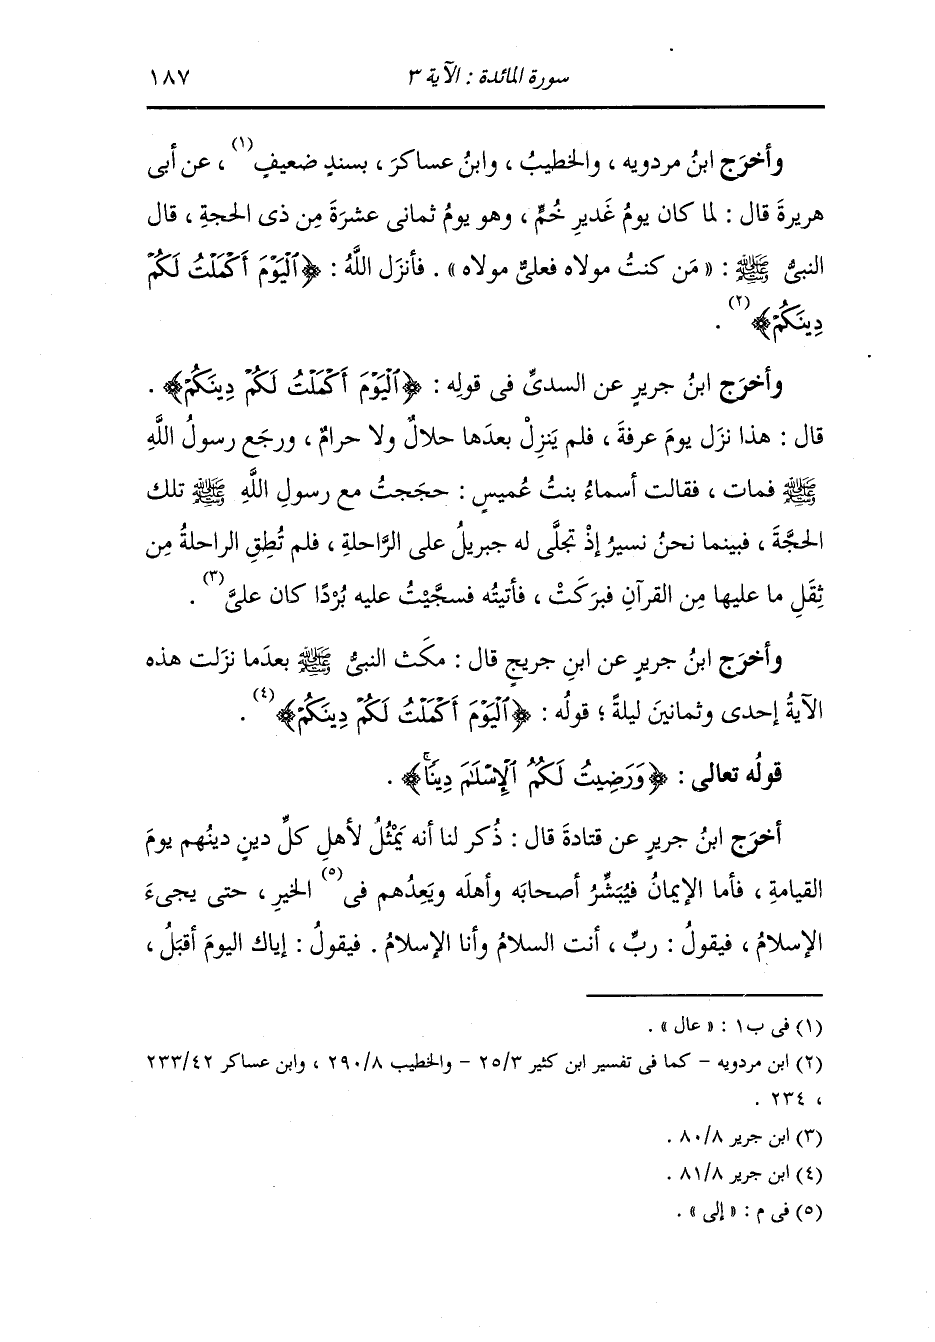 سورة المائدة : الآية ٣ ١٨٧
وأخرَج ابنُ مردويه ، والخطيبُ ، وابنُ عساكرَ ، بسندٍ ضعيفٍ(١) ، عن أبى
هريرةَ قال : لما كان يومُ غَديرِ خُمٍّ ، وهو يومُ ثمانى عشرةَ مِن ذى الحجةِ ، قال
النبىُّ ﷺ : « مَن كنتُ مولاه فعلىٌّ مولاه » . فأنزَل اللَّهُ : ﴿ٱلْيَوْمَ أَكْمَلْتُ لَكُمْ
دِينَكُمْ﴾(٢) .
وأخرَج ابنُ جريرٍ عن السدىِّ فى قولِه : ﴿ٱلْيَوْمَ أَكْمَلْتُ لَكُمْ دِينَكُمْ﴾ .
قال : هذا نزَل يومَ عرفةَ ، فلم يَنزِلْ بعدَها حلالٌ ولا حرامٌ ، ورجَع رسولُ اللَّهِ
ﷺ فمات ، فقالت أسماءُ بنتُ عُميسٍ : حجَجتُ مع رسولِ اللَّهِ ﷺ تلك
الحجَّةَ ، فبينما نحنُ نسيرُ إذْ تجلَّى له جبريلُ على الرَّاحلةِ ، فلم تُطِقِ الراحلةُ مِن
ثِقَلِ ما عليها مِن القرآنِ فبرَكَتْ ، فأتيتُه فسجَّيْتُ عليه بُرْدًا كان علىَّ(٣) .
وأخرَج ابنُ جريرٍ عن ابنِ جريجٍ قال : مكَث النبىُّ ﷺ بعدَما نزَلت هذه
الآيةُ إحدى وثمانينَ ليلةً ؛ قولُه : ﴿ٱلْيَوْمَ أَكْمَلْتُ لَكُمْ دِينَكُمْ﴾(٤) .
قولُه تعالى : ﴿وَرَضِيتُ لَكُمُ ٱلْإِسْلَٰمَ دِينًاۚ﴾ .
أخرَج ابنُ جريرٍ عن قتادةَ قال : ذُكر لنا أنه يَمْثُلُ لأهلِ كلِّ دينٍ دينُهم يومَ
القيامةِ ، فأما الإيمانُ فيُبَشِّرُ أصحابَه وأهلَه ويَعِدُهم فى(٥) الخيرِ ، حتى يجىءَ
الإسلامُ ، فيقولُ : ربِّ ، أنت السلامُ وأنا الإسلامُ . فيقولُ : إياك اليومَ أقبَلُ ،
(١) فى ب١ : « عال » .
(٢) ابن مردويه - كما فى تفسير ابن كثير ٢٥/٣ - والخطيب ٢٩٠/٨ ، وابن عساكر ٢٣٣/٤٢
، ٢٣٤ .
(٣) ابن جرير ٨٠/٨ .
(٤) ابن جرير ٨١/٨ .
(٥) فى م : « إلى » .